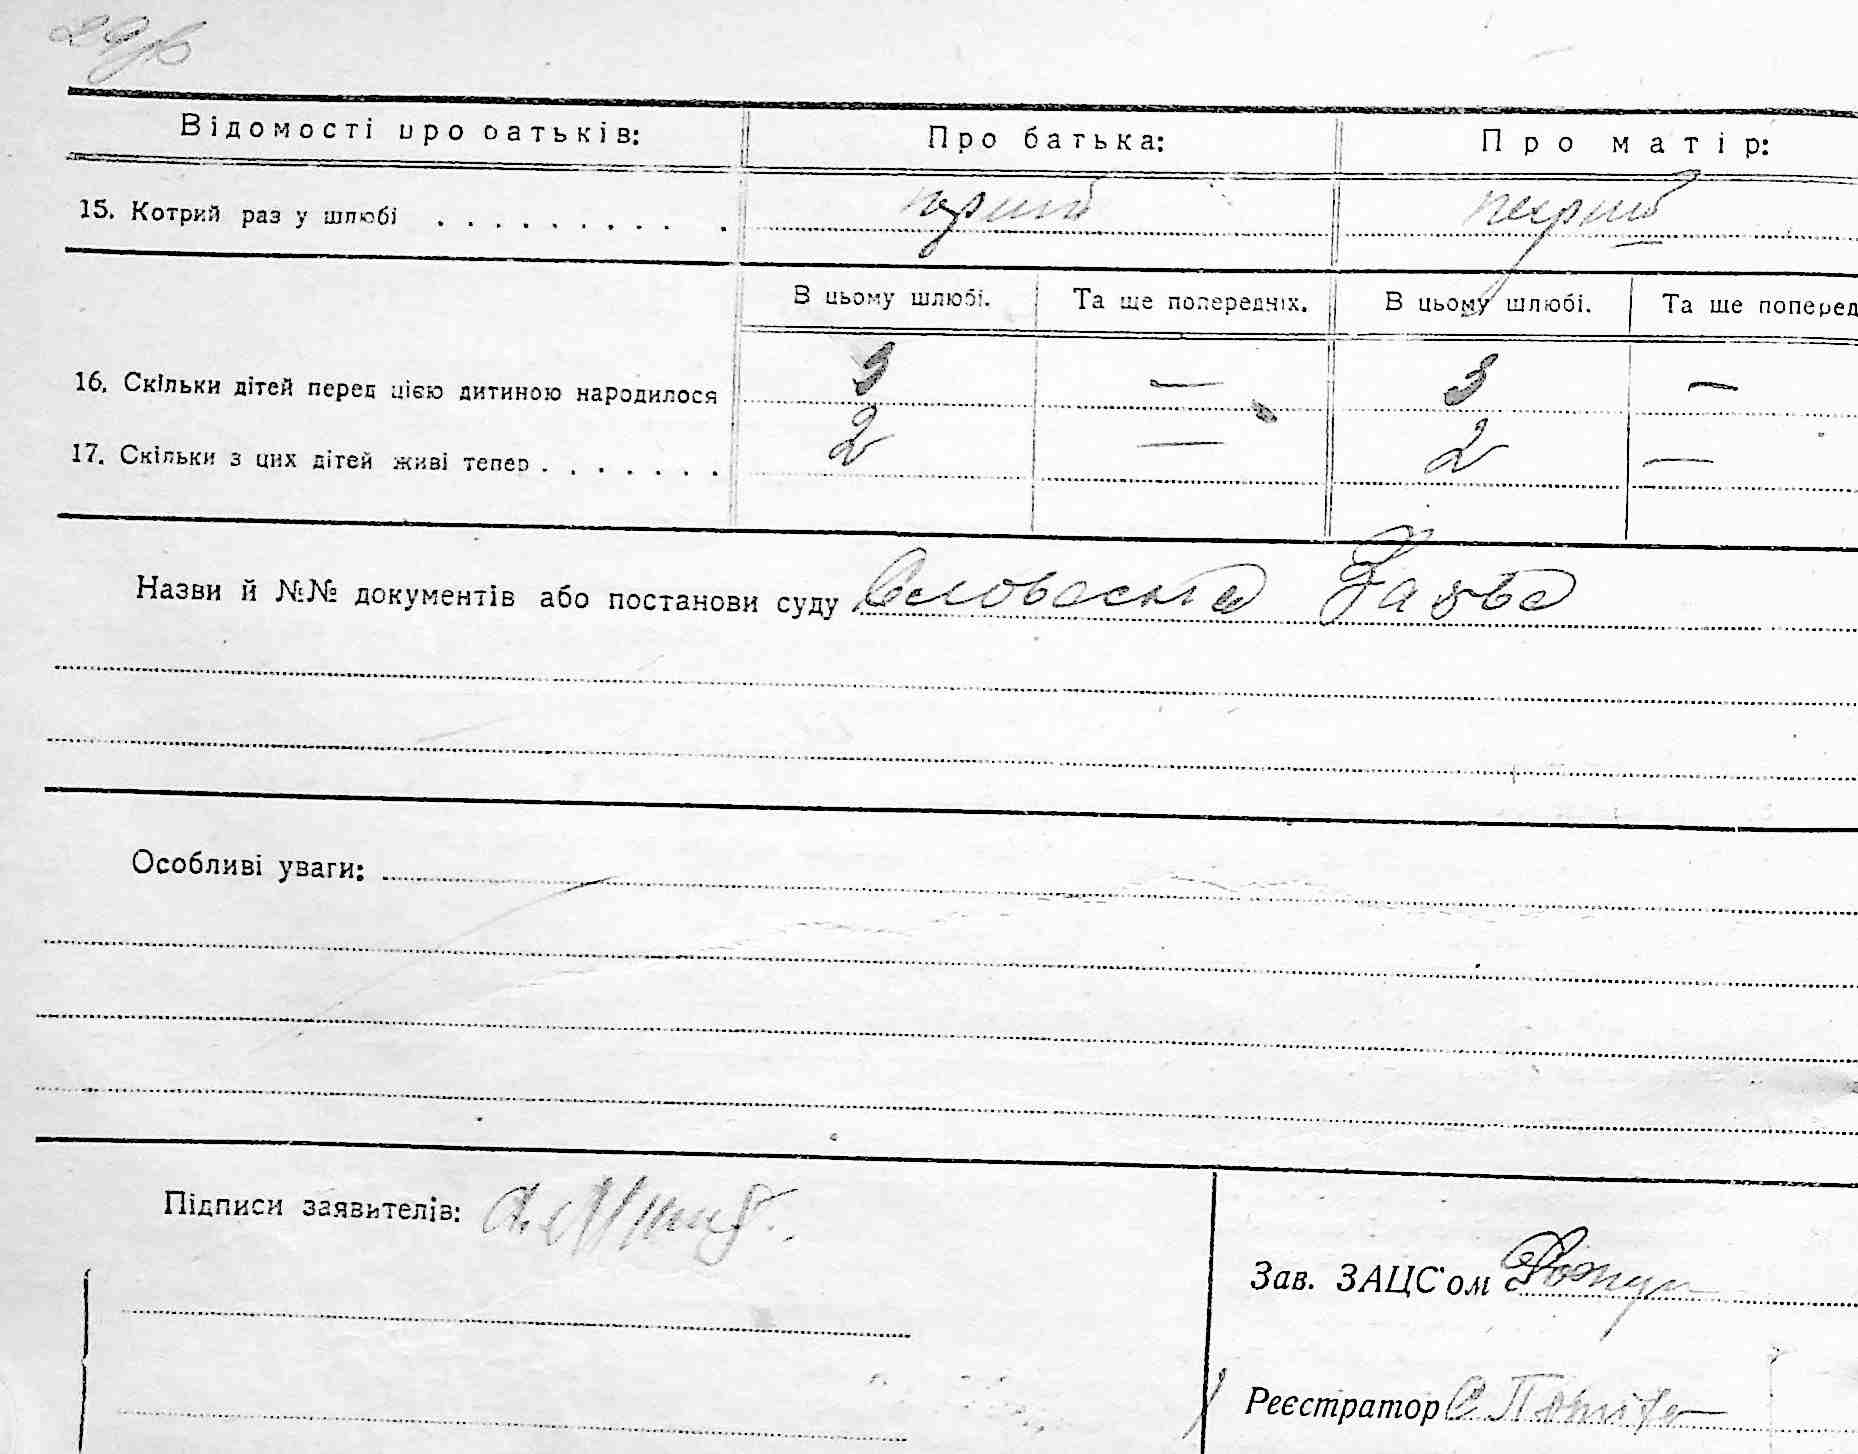 Відомості про батьків: Про батька: Про матір:
15. Котрий раз у шлюбі . . . . . . . . . . перший перший
В цьому шлюбі. Та ще попередніх. В цьому шлюбі. Та ще поперед
16. Скільки дітей перед цією дитиною народилося 3 — 3 —
17. Скільки з цих дітей живі тепер . . . . . . . 2 — 2 —
Назви й №№ документів або постанови суду Словесна Заява
Особливі уваги:
Підписи заявителів:
Зав. ЗАЦС'ом
Реєстратор